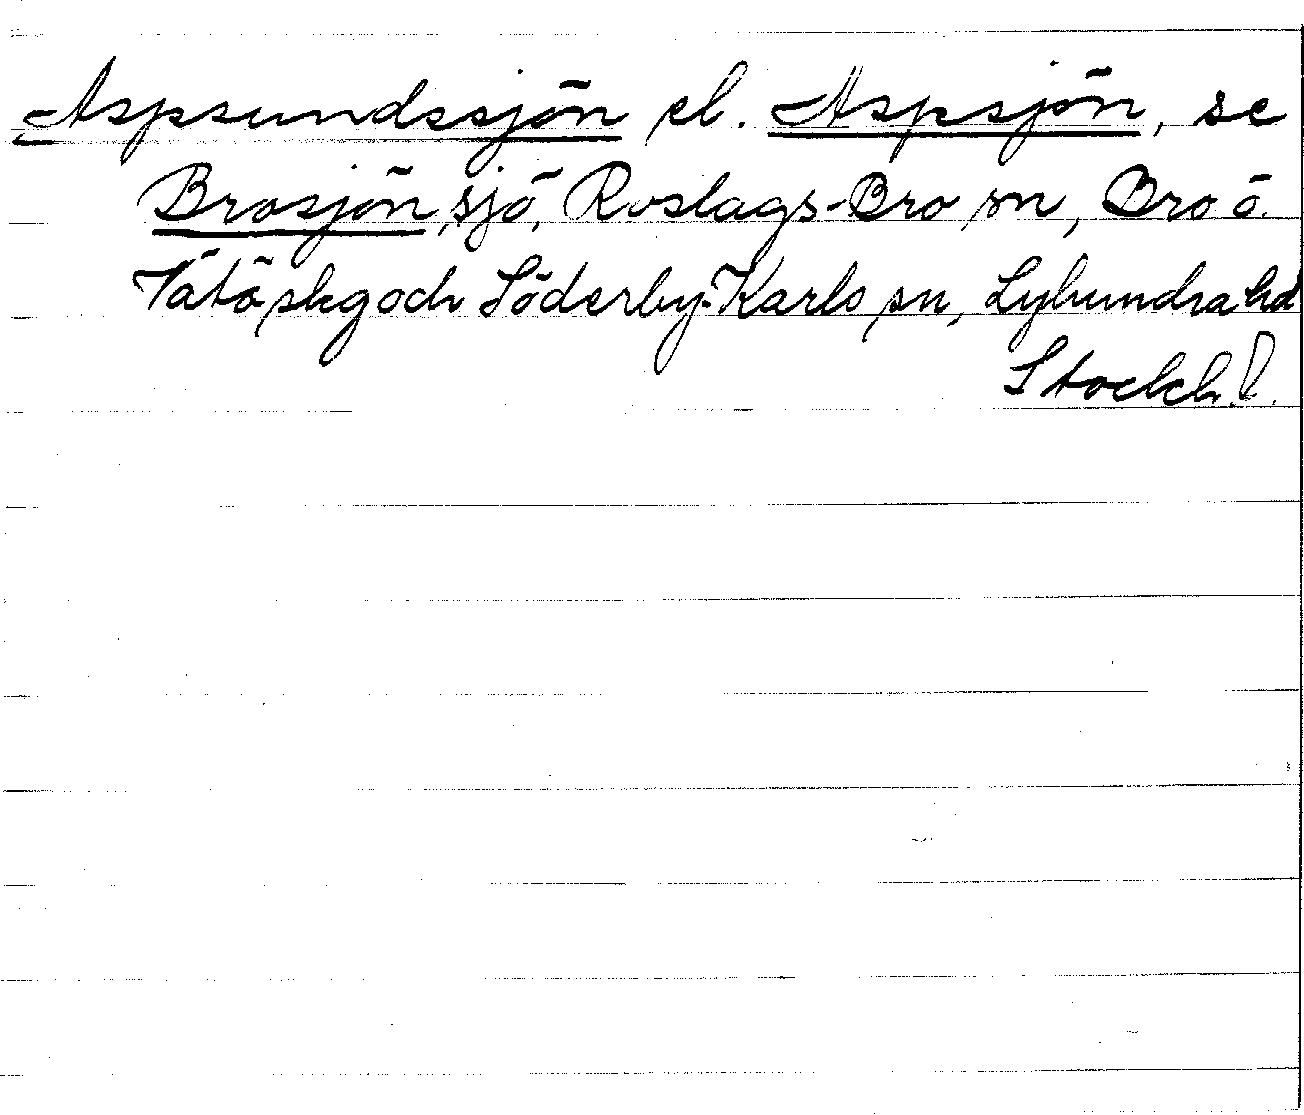 Aspsundssjön el. Aspsjön, se
Brosjön, sjö, Roslags-Bro sn, Bro o.
Vätö skg och Söderby-Karls sn, Lyhundra hd
Stockh. l.